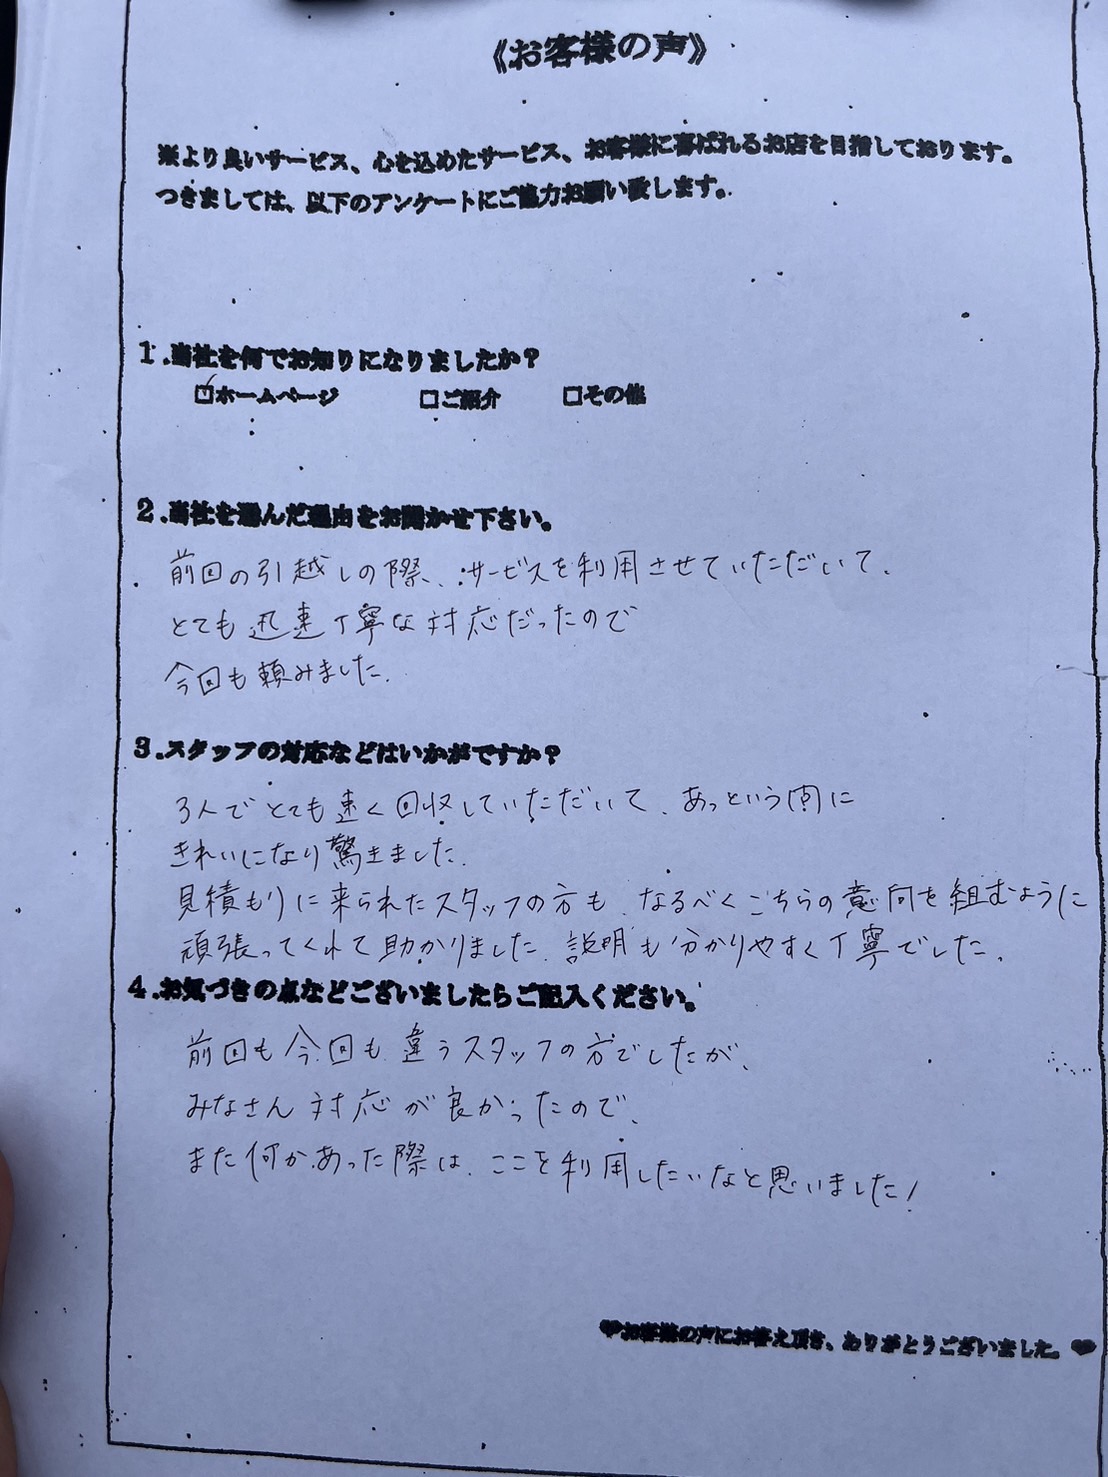 《お客様の声》
※より良いサービス、心を込めたサービス、お客様に喜ばれるお店を目指しております。
つきましては、以下のアンケートにご協力お願い致します。
1.当社を何でお知りになりましたか？
☑ホームページ □ご紹介 □その他
2.当社を選んだ理由をお聞かせ下さい。
前回の引越しの際、サービスを利用させていただいて、
とても迅速丁寧な対応だったので
今回も頼みました。
3.スタッフの対応などはいかがですか？
3人でとても速く回収していただいて、あっという間に
きれいになり驚きました。
見積もりに来られたスタッフの方も、なるべくこちらの意向を組むように
頑張ってくれて助かりました。説明も分かりやすく丁寧でした。
4.お気づきの点などございましたらご記入ください。
前回も今回も違うスタッフの方でしたが、
みなさん対応が良かったので、
また何かあった際は、ここを利用したいなと思いました！
♥お客様の声にお答え頂き、ありがとうございました。♥